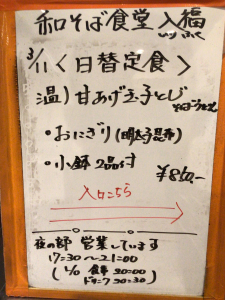 和そば食堂 入福
3/11〈日替定食〉
温)甘あげ玉子とじ
そばorうどん
・おにぎり(明太子昆布)
・小鉢2品付
¥860.-
入口こちら
夜の部 営業しています
17:30〜21:00
(L/O 食事 20:00
ドリンク 20:30)